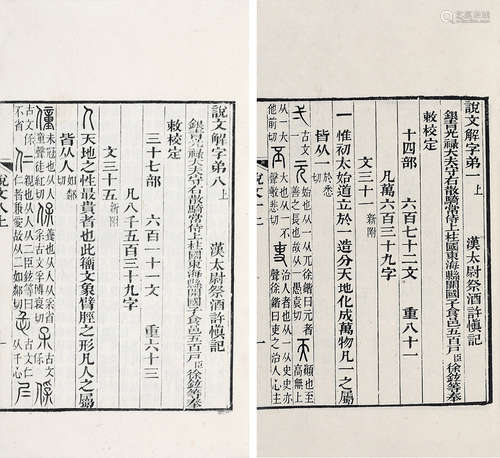 說文解字弟一上　漢太尉祭酒許慎記
銀青光祿大夫守右散騎常侍上柱國東海縣開國子食邑五百戶臣徐鉉等奉
敕校定
十四部　六百七十二文　重八十一
凡萬六百三十九字
文三十一新附
一　惟初太始道立於一造分天地化成萬物凡一之屬
皆从一於悉切
弌古文一　元始也从一从兀徐鍇曰元者善之長也故从一愚袁切　天顛也至高無上
从一大他前切　丕大也从一不聲敷悲切　吏治人者也从一从史史亦聲徐鍇曰吏之治人心主
說文解字弟八上　漢太尉祭酒許慎記
銀青光祿大夫守右散騎常侍上柱國東海縣開國子食邑五百戶臣徐鉉等奉
敕校定
三十七部　六百一十一文　重六十三
凡八千五百三十九字
文三十五新附
人　天地之性最貴者也此籒文象臂脛之形凡人之屬
皆从人如鄰切
僮未冠也从人童聲徒紅切　保養也从人从古文孚博袌切　古文保
古文保不省　仁親也从人从二臣鉉等曰仁者兼愛故从二如鄰切　古文仁从千心
說文八上